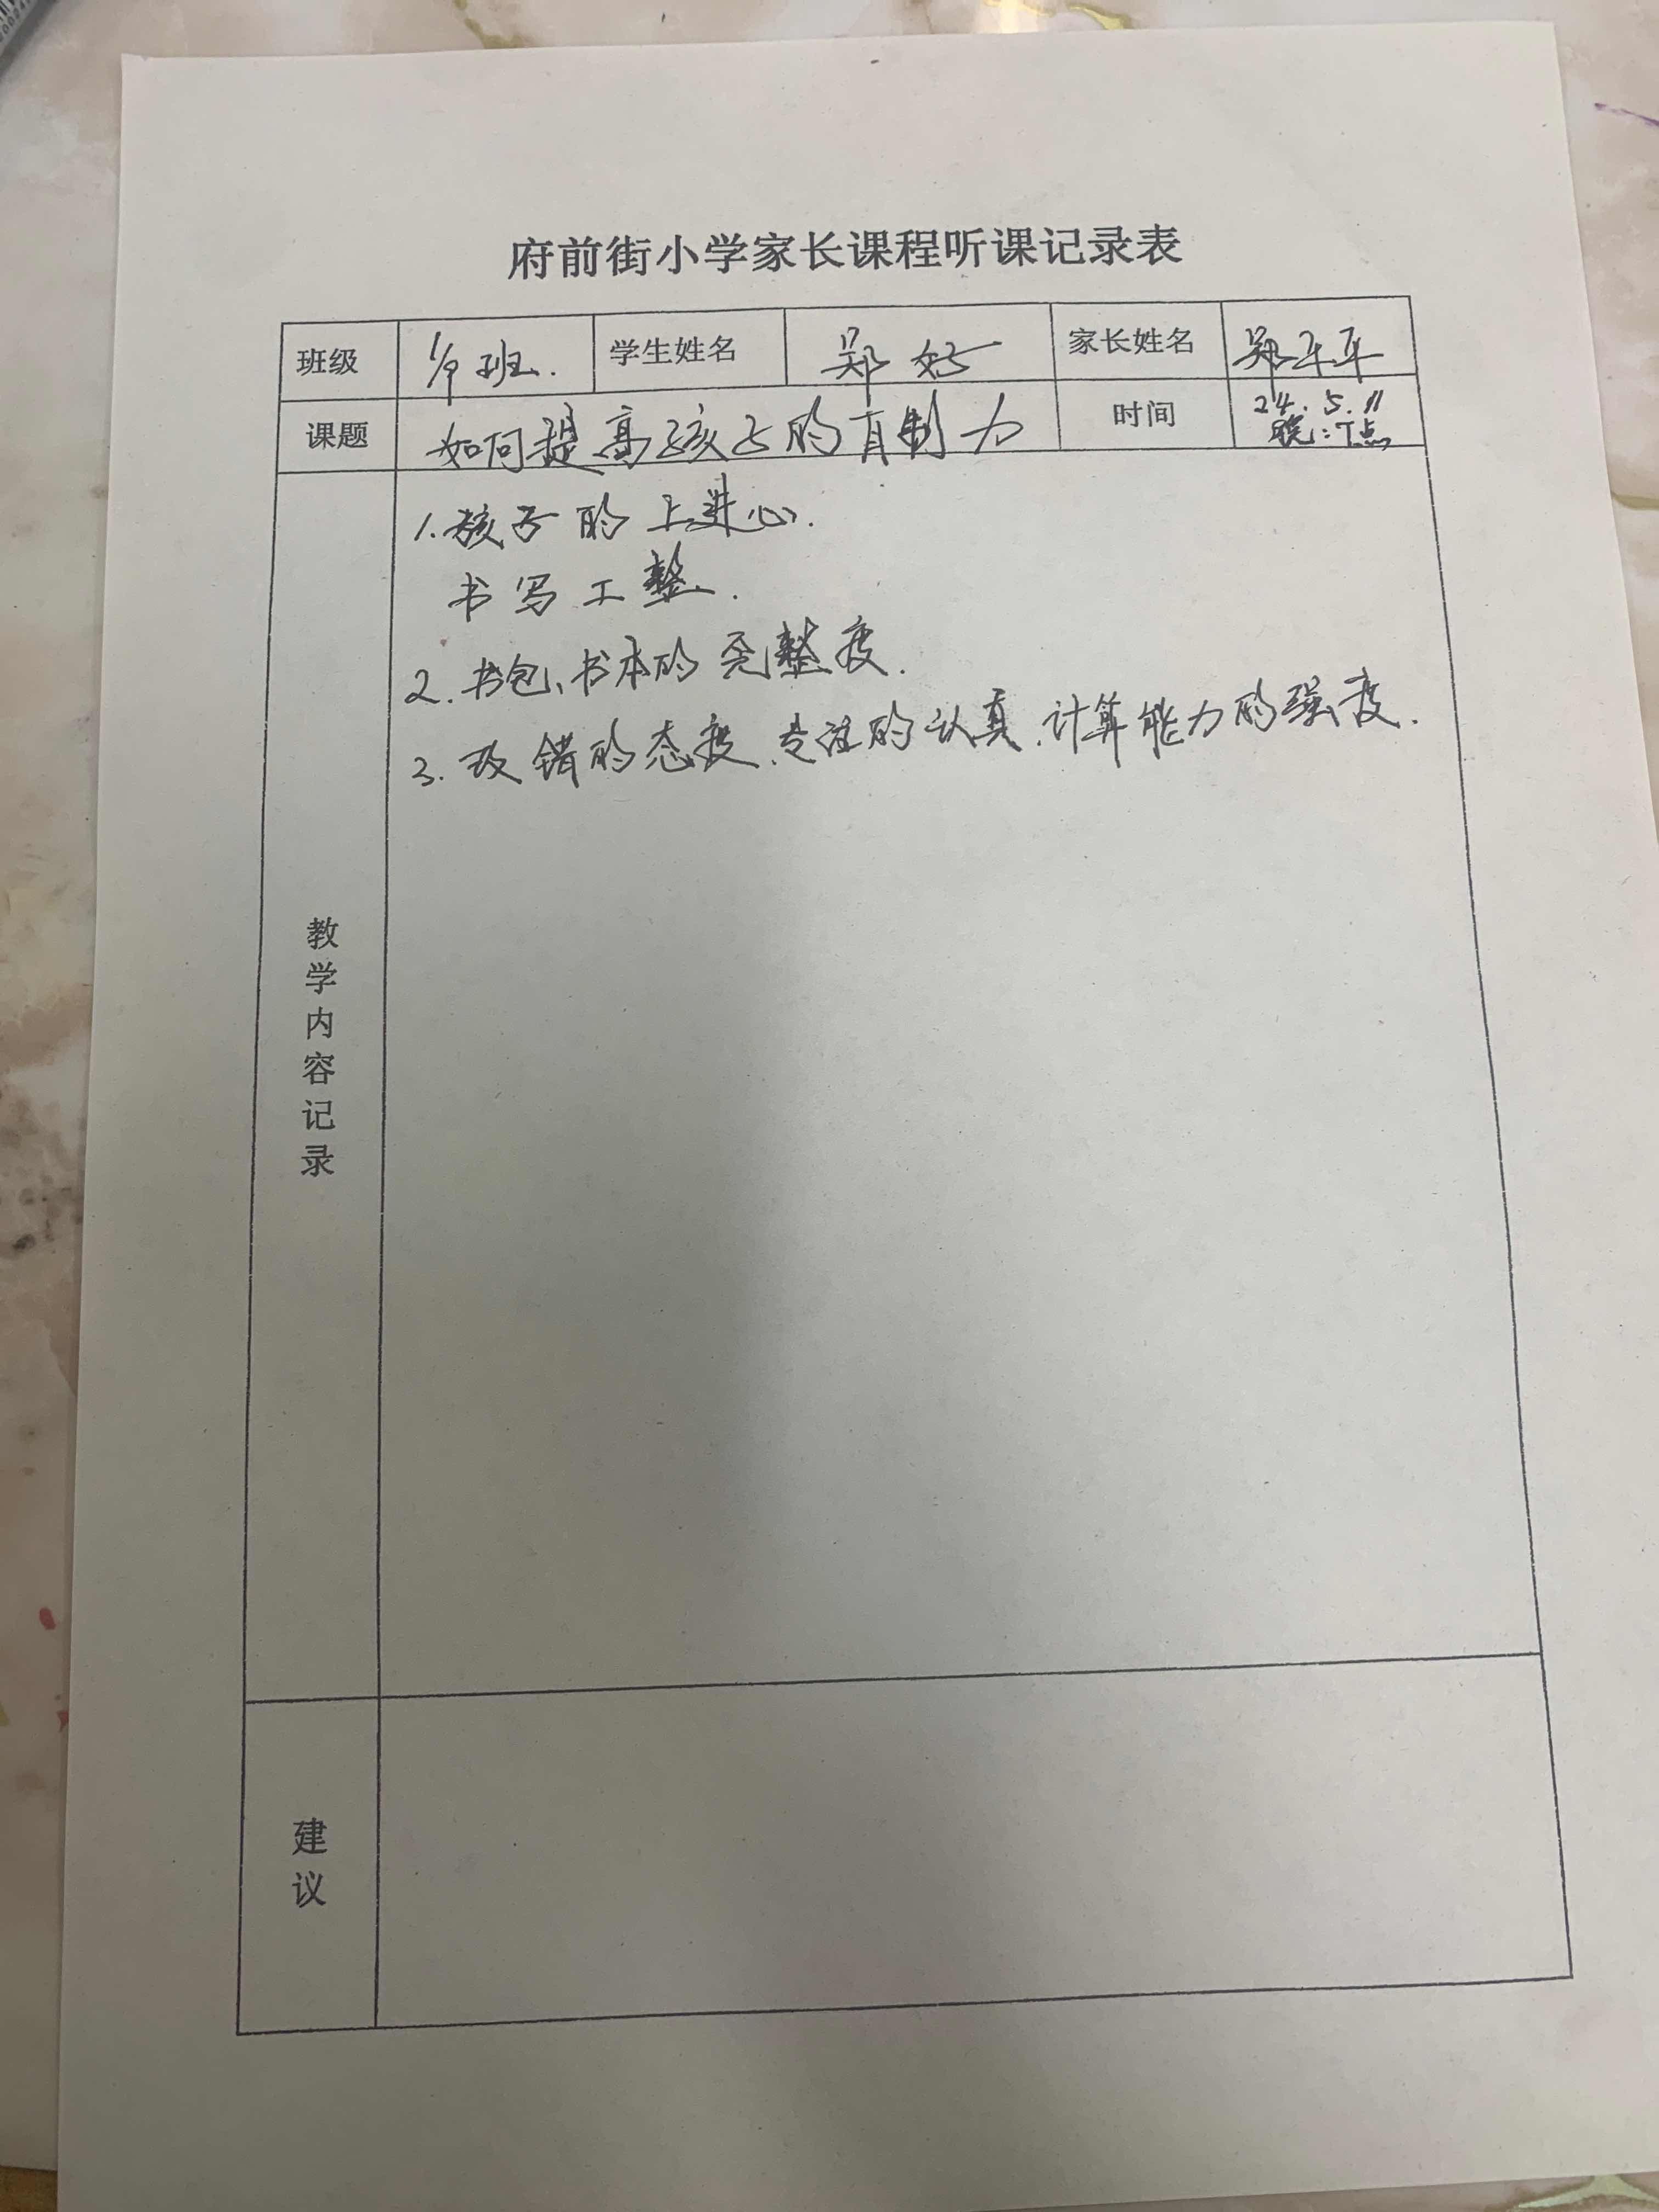 府前街小学家长课程听课记录表
班级 1/9 班. 学生姓名 郑好 家长姓名 郑平平
课题 如何提高孩子的自制力 时间 24.5.11
晚:7点
教学内容记录
1.孩子的上进心.
书写工整.
2.书包、书本的完整度.
3.改错的态度、专注的认真、计算能力的强度.
建议